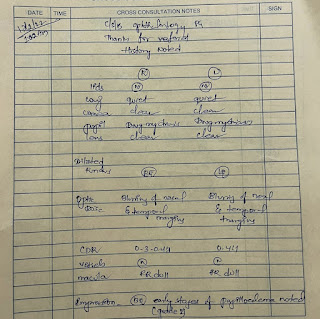 DATE TIME CROSS CONSULTATION NOTES SIGN
Thanks for referral
History Noted
(R) (L)
lids (N) (N)
conj quiet quiet
cornea clear clear
pupil Drug mydriasis Drug mydriasis
lens clear clear
Dilated
Fundus (RE) (LE)
Optic Blurring of nasal Blurring of nasal
Disc & temporal & temporal
margins margins
CDR
vessels (N) (N)
macula FR dull FR dull
Impression (BE) early stages of Papilloedema noted